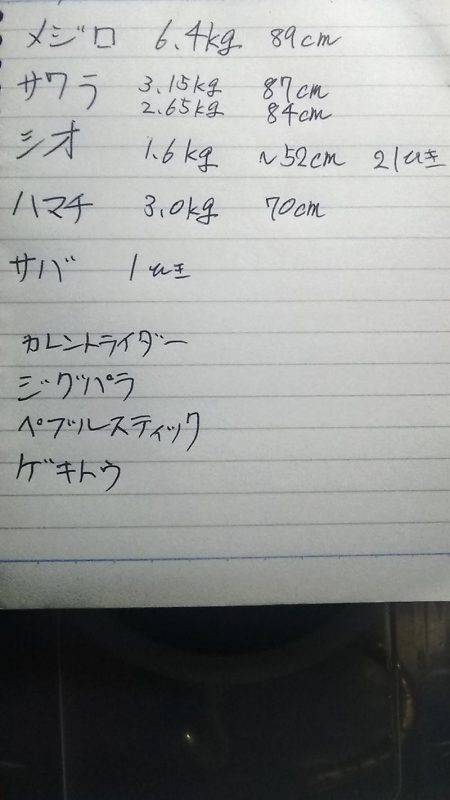 メジロ 6.4kg 89cm
サワラ 3.15kg 87cm
2.65kg 84cm
シオ 1.6kg ~52cm 21ひき
ハマチ 3.0kg 70cm
サバ 1ひき
カレントライダー
ジグパラ
ペブルスティック
ゲキトウ